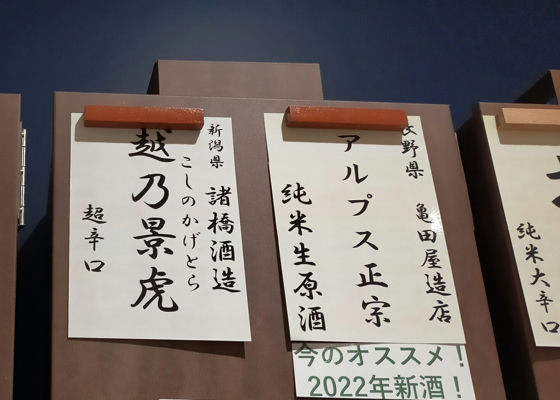 新潟県 諸橋酒造
こしのかげとら
越乃景虎
超辛口
長野県 亀田屋造店
アルプス正宗
純米生原酒
今のオススメ！
2022年新酒！
純米大辛口